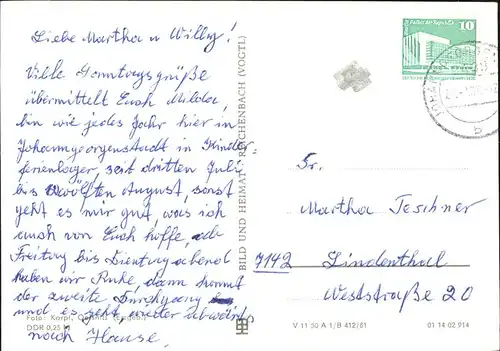 Liebe Martha u Willy!
Viele Sonntagsgrüße
übermittelt Euch Milda,
bin wie jedes Jahr hier in
Johanngeorgenstadt in Kinder-
ferienlager, seit dritten Juli
bis zwölften August, sonst
geht es mir gut, was ich
auch von Euch hoffe,
Freitag bis Dienstag abend
haben wir Ruhe, dann kommt
der zweite Durchgang
und es geht wieder abwärts
nach Hause.
Foto: Karpf,
DDR 0,25 M
BILD UND HEIMAT REICHENBACH (VOGTL)
Palast der Republik
10
b
Fr.
Martha Teschner
7142 Lindenthal
Weststraße 20
V 11 50 A 1/B 412/81
01 14 02 914